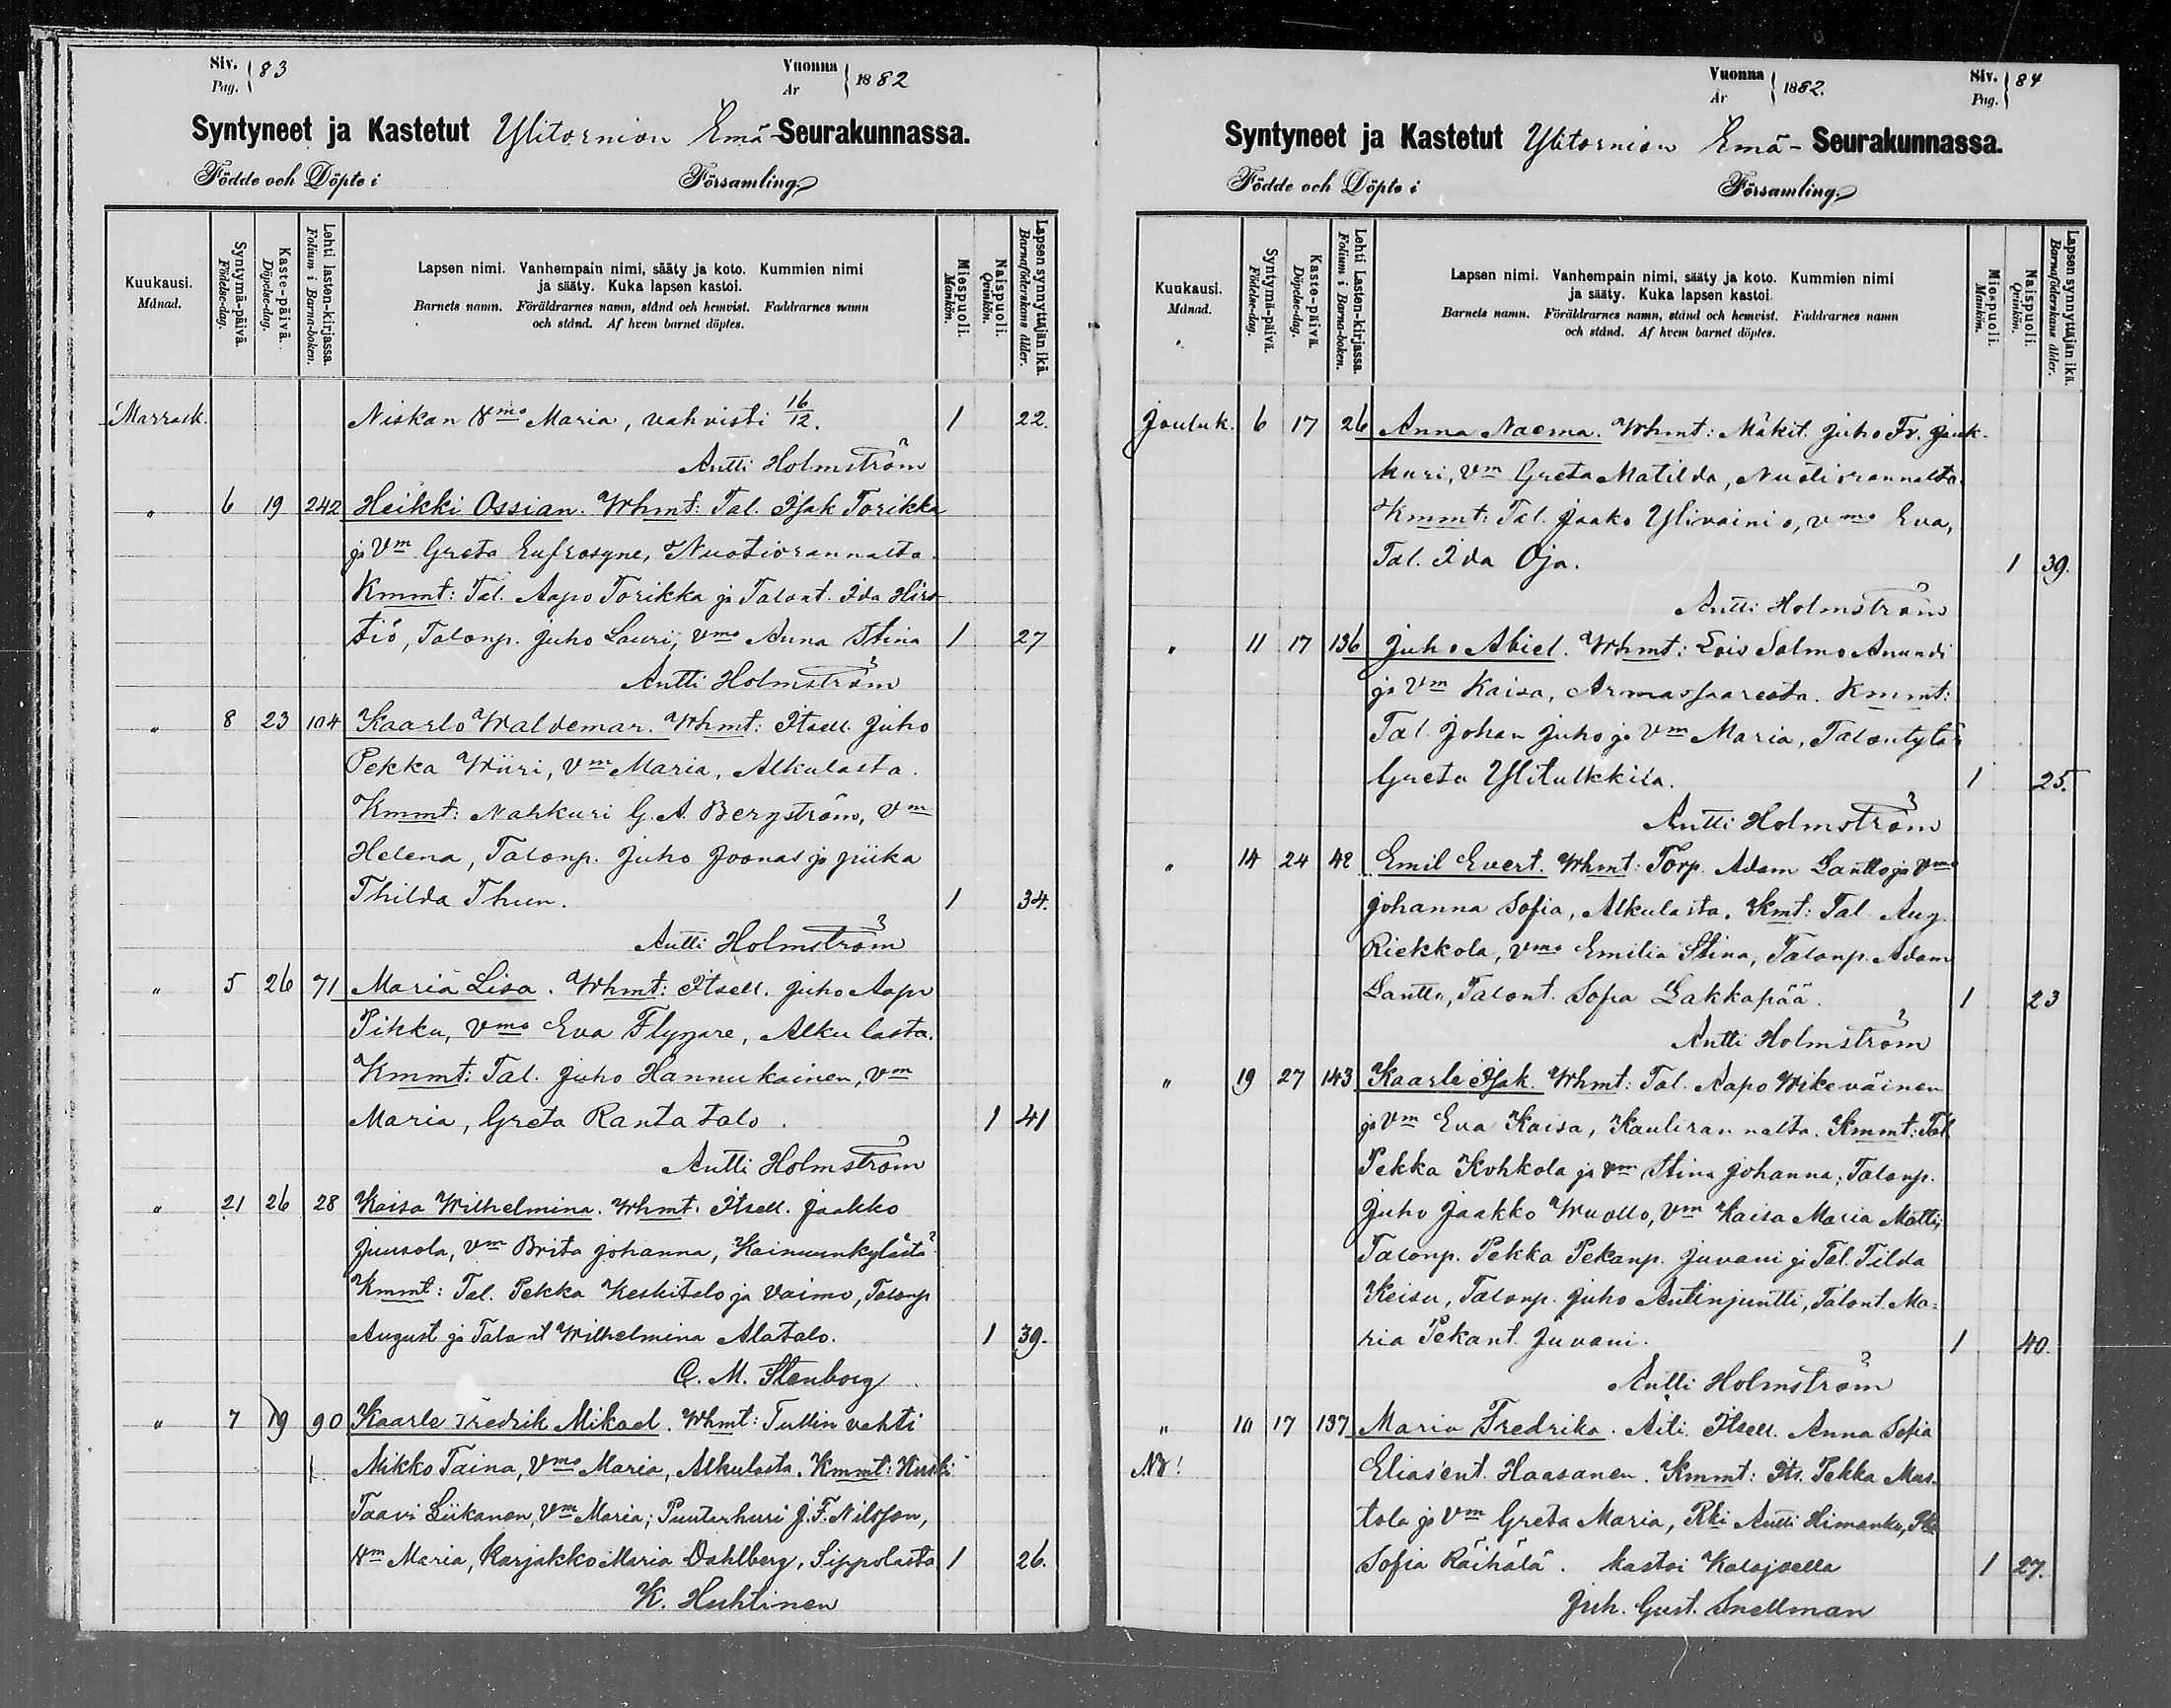 Siv. 83
Pag.
Vuonna 1882
Ar
Syntyneet ja Kastetut Ylitornion Emä-Seurakunnassa.
Födde och Döpte i Församling
Kuukausi.
Månad.
Syntymä-päivä.
Födelse-dag.
Kaste-päivä.
Döpelse-dag.
Lehti lasten-kirjassa.
Folium i Barna-boken.
Lapsen nimi. Vanhempain nimi, sääty ja koto. Kummien nimi
ja sääty. Kuka lapsen kastoi.
Barnets namn. Föräldrarnes namn, stånd och hemvist. Faddrarnes namn
och stånd. Af hvem barnet döptes.
Miespuoli.
Mankön.
Naispuoli.
Qvinkön.
Lapsen synnyttäjän ikä.
Barnaföderskans ålder.
Marrask. Niskan Vmo Maria, vahvisti 16/12. 1 22.
Antti Holmström
" 6 19 242 Heikki Ossian. Whmt: Tal. Isak Torikka
ja Vm Greta Eufrosyne, Nuotiorannalta.
Kmmt: Tal. Aapo Torikka ja Talont. Ida Hirs-
tiö, Talonp. Juho Lauri, Vmo Anna Stina 1 27
Antti Holmström
" 8 23 104 Kaarlo Waldemar. Whmt: Itsell. Juho
Pekka Wiiri, Vm Maria, Alkulasta.
Kmmt: Nahkuri G. A. Bergström, Vm
Helena, Talonp. Juho Joonas ja piika
Thilda Thun. 1 34.
Antti Holmström
" 5 26 71 Maria Lisa. Whmt: Itsell. Juho Aapo
Pikku, Vmo Eva Flygare, Alkulasta.
Kmmt: Tal. Juho Hannukainen, Vm
Maria, Greta Rantatalo. 1 41
Antti Holmström
" 21 26 28 Kaisa Wilhelmina. Whmt. Itsell. Jaakko
Juusola, Vm Brita Johanna, Kainuunkylästä
Kmmt: Tal. Pekka Keskitalo ja Vaimo, Talonp
August ja Talont Wilhelmina Alatalo. 1 39.
C. M. Stenborg
" 7 19 90 Kaarle Fredrik Mikael. Whmt: Tullin vahti
Mikko Taina, Vmo Maria, Alkulasta. Kmmt:
Taavi Liikanen, Vm Maria; Puuterhuri J. F. Nilsson,
Vm Maria, Karjakko Maria Dahlberg, Sippolasta 1 26.
K. Huhtinen
Vuonna 1882.
Ar
Siv. 84
Pag.
Syntyneet ja Kastetut Ylitornion Emä-Seurakunnassa.
Födde och Döpte i Församling
Kuukausi.
Månad.
Syntymä-päivä.
Födelse-dag.
Kaste-päivä.
Döpelse-dag.
Lehti Lasten-kirjassa.
Folium i Barna-boken.
Lapsen nimi. Vanhempain nimi, sääty ja koto. Kummien nimi
ja sääty. Kuka lapsen kastoi.
Barnets namn. Föräldrarnes namn, stånd och hemvist. Faddrarnes namn
och stånd. Af hvem barnet döptes.
Miespuoli.
Mankön.
Naispuoli.
Qvinkön.
Lapsen synnyttäjän ikä.
Barnaföderskans ålder.
Jouluk. 6 17 26 Anna Naema. Whmt: Mäkit. Juho Fr. Junk-
kuri, Vm Greta Matilda, Nuotiorannalta.
Kmmt: Tal. Jaako Ylivainio, vmo Eva,
Tal. Ida Oja. 1 39.
Antti Holmström
" 11 17 136 Juho Abiel. Whmt: Lois Salmo Anundi
ja Vm Kaisa, Armassaaresta. Kmmt:
Tal. Johan Juho ja Vm Maria, Talontytär
Greta Ylitulkkila. 1 25.
Antti Holmström
" 14 24 48 Emil Evert. Whmt: Torp. Adam Lantto ja Vmo
Johanna Sofia, Alkulasta. Kmt: Tal. Aug.
Riekkola, Vmo Emilia Stina, Talonp. Adam
Lantto, Talont. Sofia Lakkapää. 1 23
Antti Holmström
" 19 27 143 Kaarle Isak. Whmt: Tal. Aapo Wikeväinen
ja Vm Eva Kaisa, Kaulirannalta. Kmmt: Tal
Pekka Kohkola ja vm Stina Johanna; Talonp.
Juho Jaakko Wuollo, Vm Kaisa Maria Matti;
Talonp. Pekka Pekanp. Juvani ja Tal. Tilda
Keisu, Talonp. Juho Antinjuntti, Talont. Ma-
ria Pekant. Juvani. 1 40.
Antti Holmström
" 10 17 137 Maria Fredrika. Äiti. Itsell. Anna Sofia
NB! Eliasent. Haasanen. Kmmt: Its. Pekka Mus-
tola ja Vm Greta Maria, Rki Antti Himanka,
Sofia Räihälä. kastoi Kalajoella 1 27.
Juh. Gust. Snellman